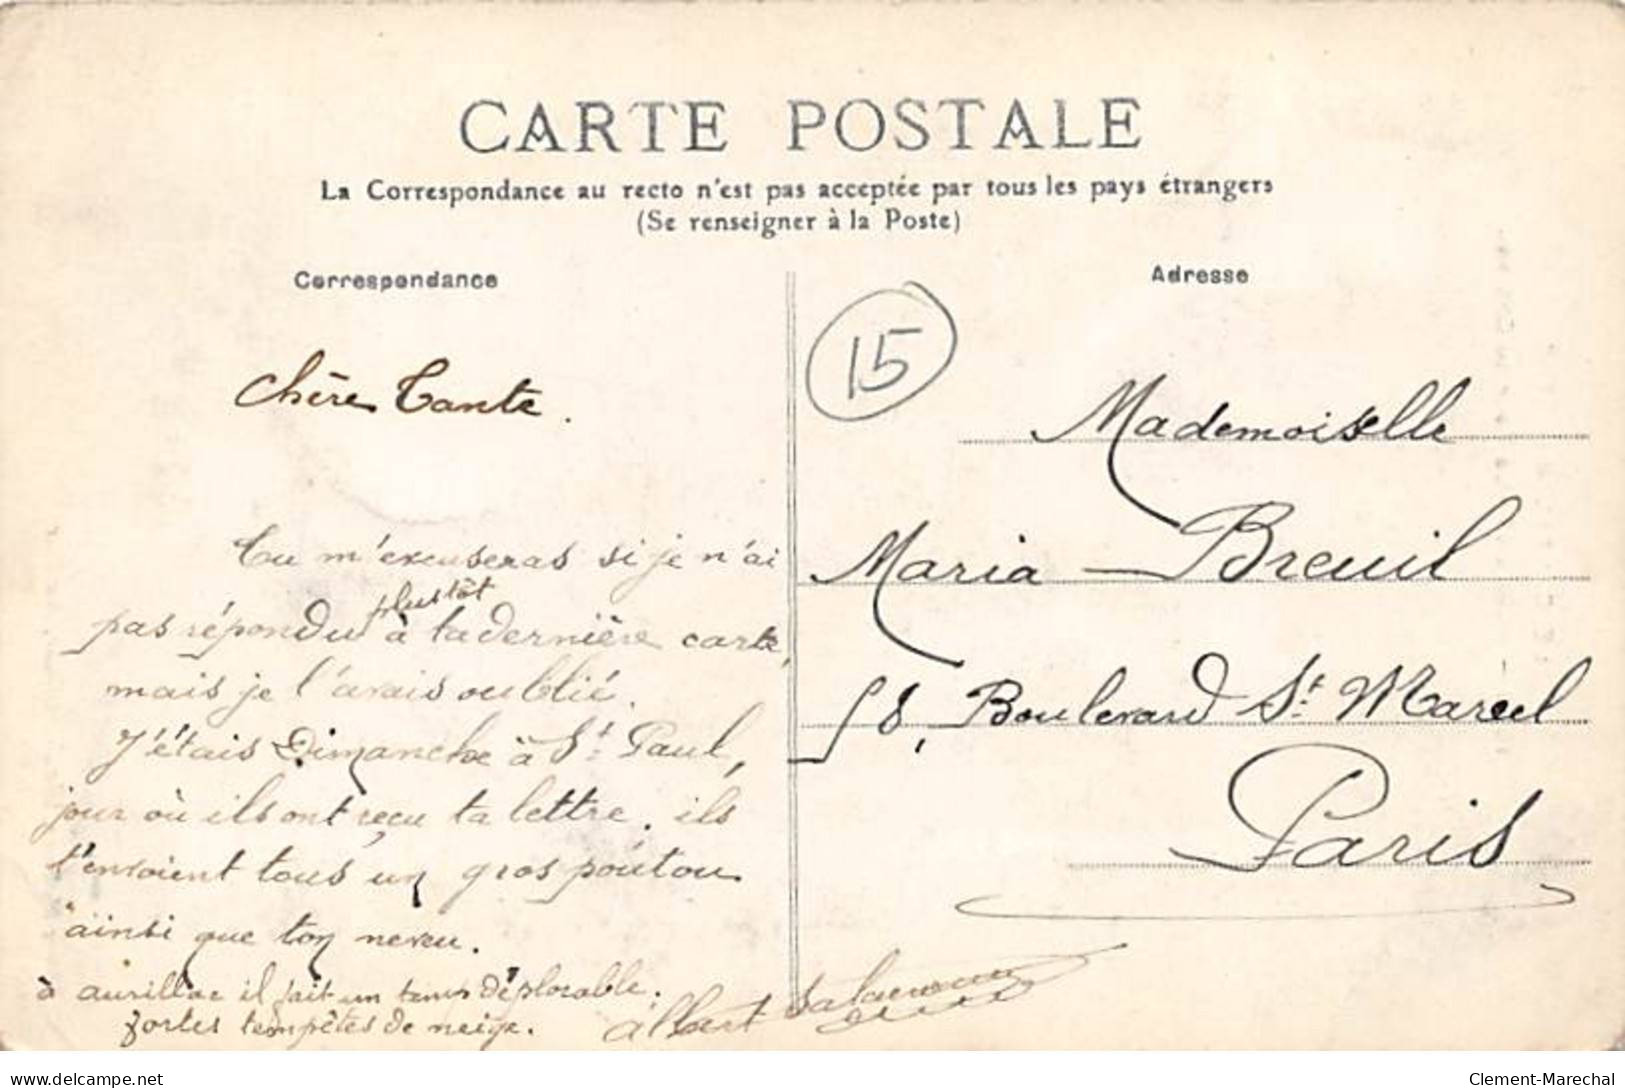 CARTE POSTALE
La Correspondance au recto n'est pas acceptée par tous les pays étrangers
(Se renseigner à la Poste)
Correspondance
Chère Tante.
Tu m'excuseras si je n'ai
pas répondu plustôt à ta dernière carte,
mais je l'avais oublié.
J'étais Dimanche à St Paul,
jour où ils ont reçu ta lettre. ils
t'envoient tous un gros poutou
ainsi que ton neveu.
à aurillac il fait un temps déplorable.
fortes tempêtes de neige.
Albert
Adresse
15
Mademoiselle
Maria Breuil
58, Boulevard St Marcel
Paris
delcampe.net
Clement-Marechal